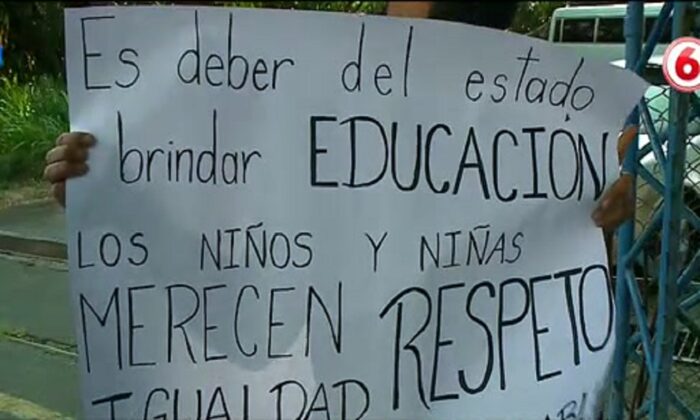 6
Es deber del estado
brindar EDUCACIÓN
LOS NIÑOS Y NIÑAS
MERECEN RESPETO
IGUALDAD